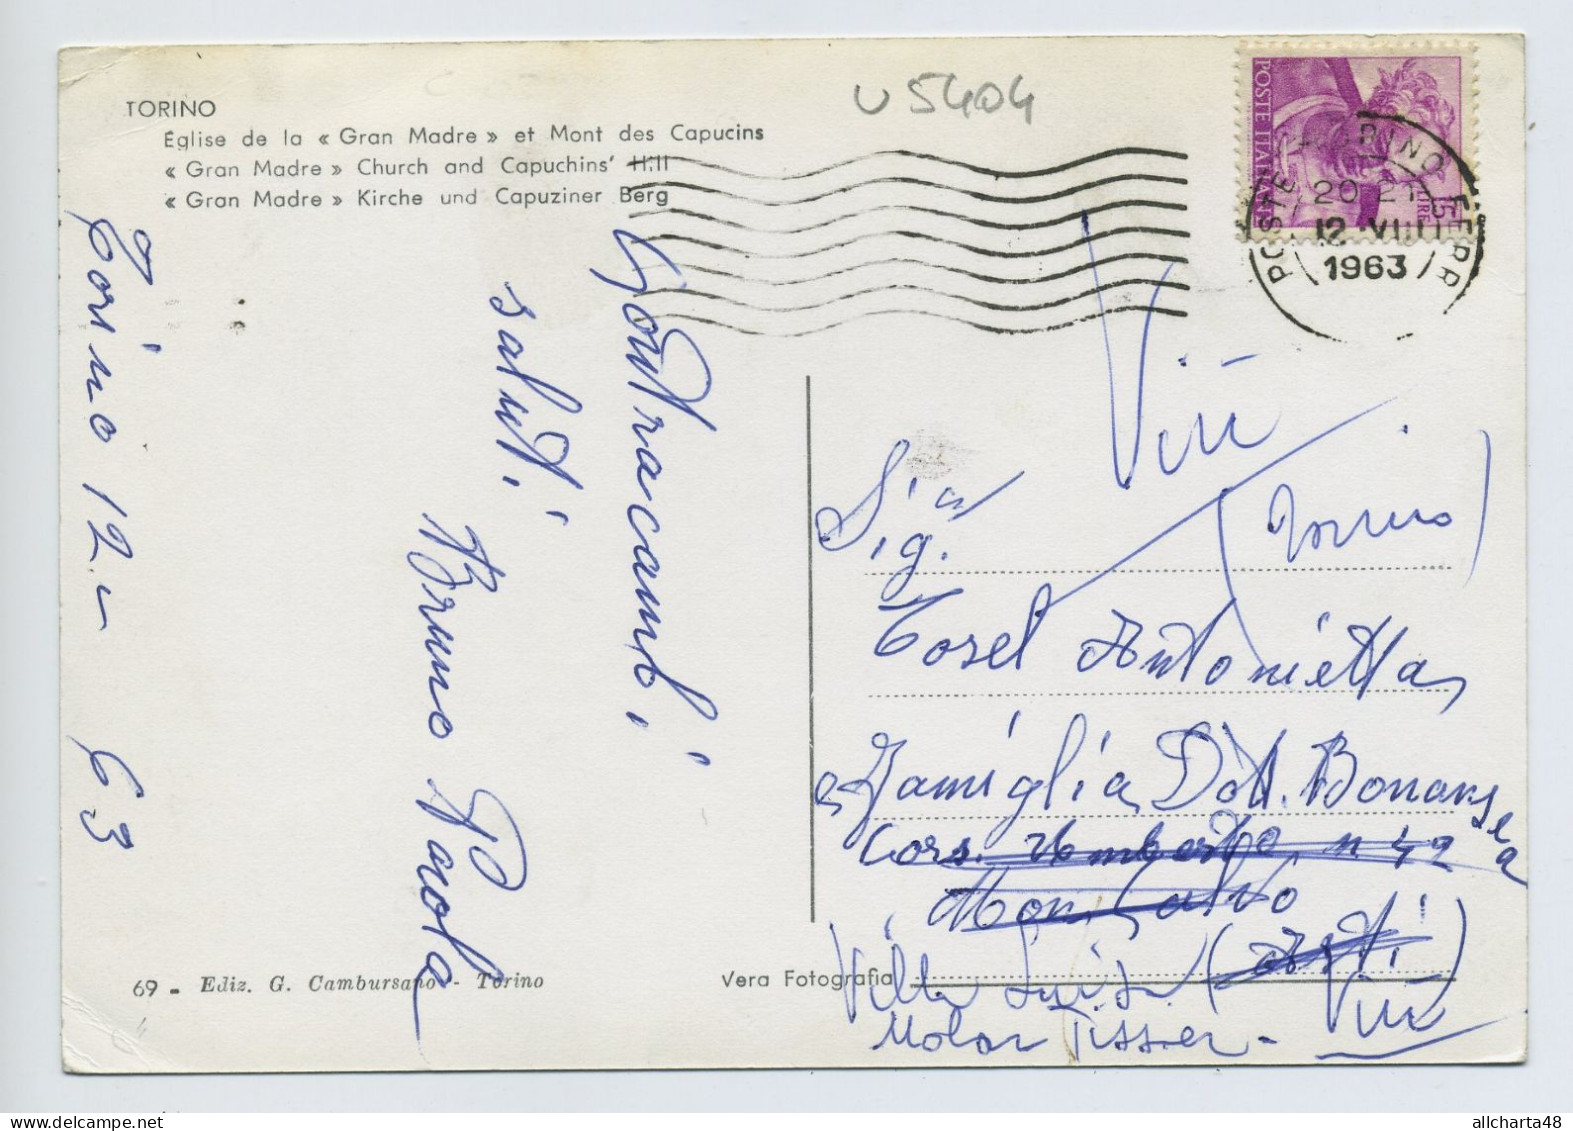 TORINO
Église de la « Gran Madre » et Mont des Capucins
« Gran Madre » Church and Capuchins' Hill
« Gran Madre » Kirche und Capuziner Berg
U 5404
POSTE ITALIANE
LIRE 15
POSTE TORINO FERR
20-21
12 VIII
1963
Torino 12 - 63
Contraccambi
saluti.
Bruno Parola
Viù
(Torino)
Sig.na
Tosel Antonietta
Famiglia Dott. Bonansea
Cors. Umberto n 42
Moncalvo
(Asti)
Villa Luisa
Molar Tisser - Viù
69 - Ediz. G. Cambursano - Torino
Vera Fotografia
allcharta48